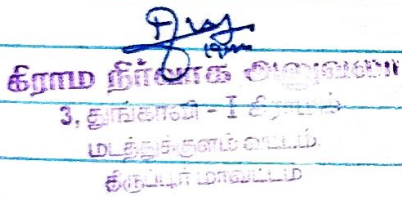 கிராம நிர்வாக அலுவலர்
3, துங்காவி - I கிராமம்
மடத்துக்குளம் வட்டம்
திருப்பூர் மாவட்டம்